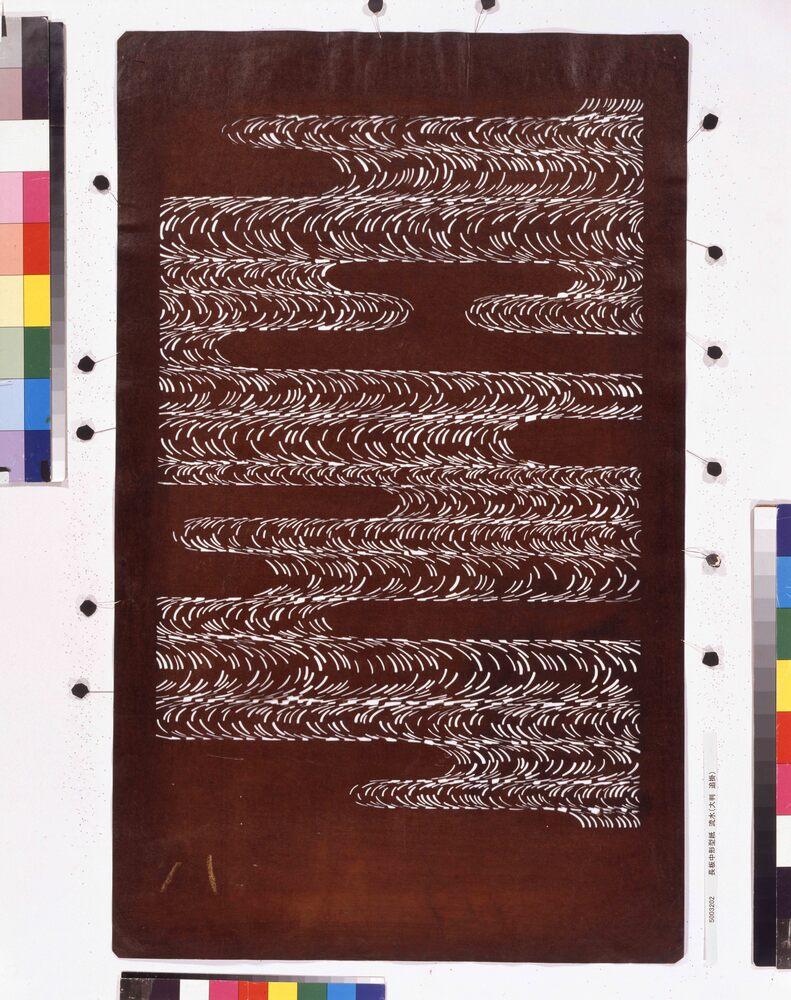 5003202 長板中形型紙 流水(大判 追掛)
八